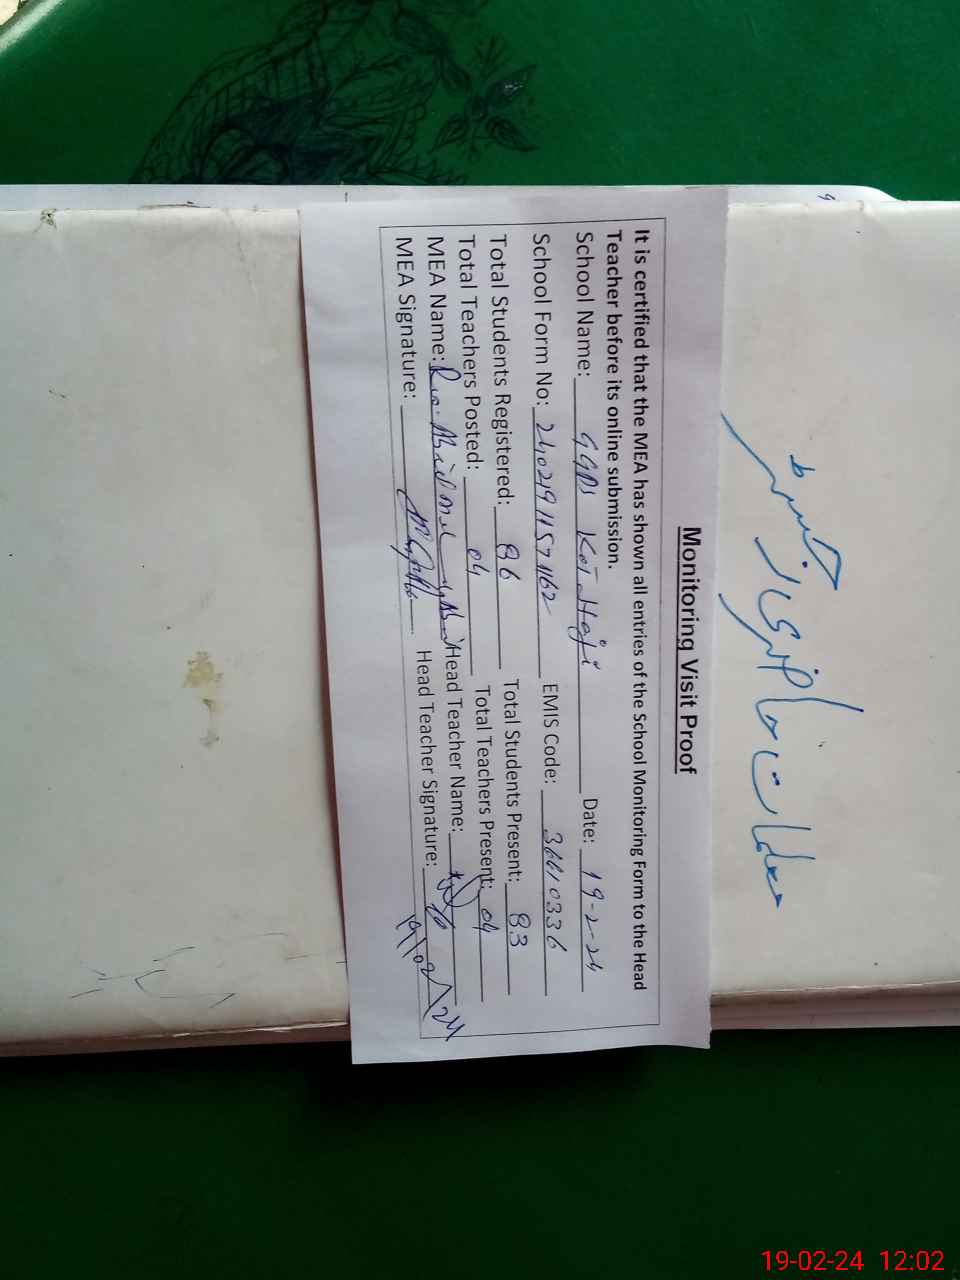 معلمات و حاضری رجسٹر
Monitoring Visit Proof
It is certified that the MEA has shown all entries of the School Monitoring Form to the Head
Teacher before its online submission.
School Name: GGPS Kot Haji Date: 19-2-24
School Form No: EMIS Code: 36610336
Total Students Registered: 86 Total Students Present: 83
Total Teachers Posted: 04 Total Teachers Present: 04
MEA Name: Head Teacher Name:
MEA Signature: Head Teacher Signature:
19-02-24 12:02